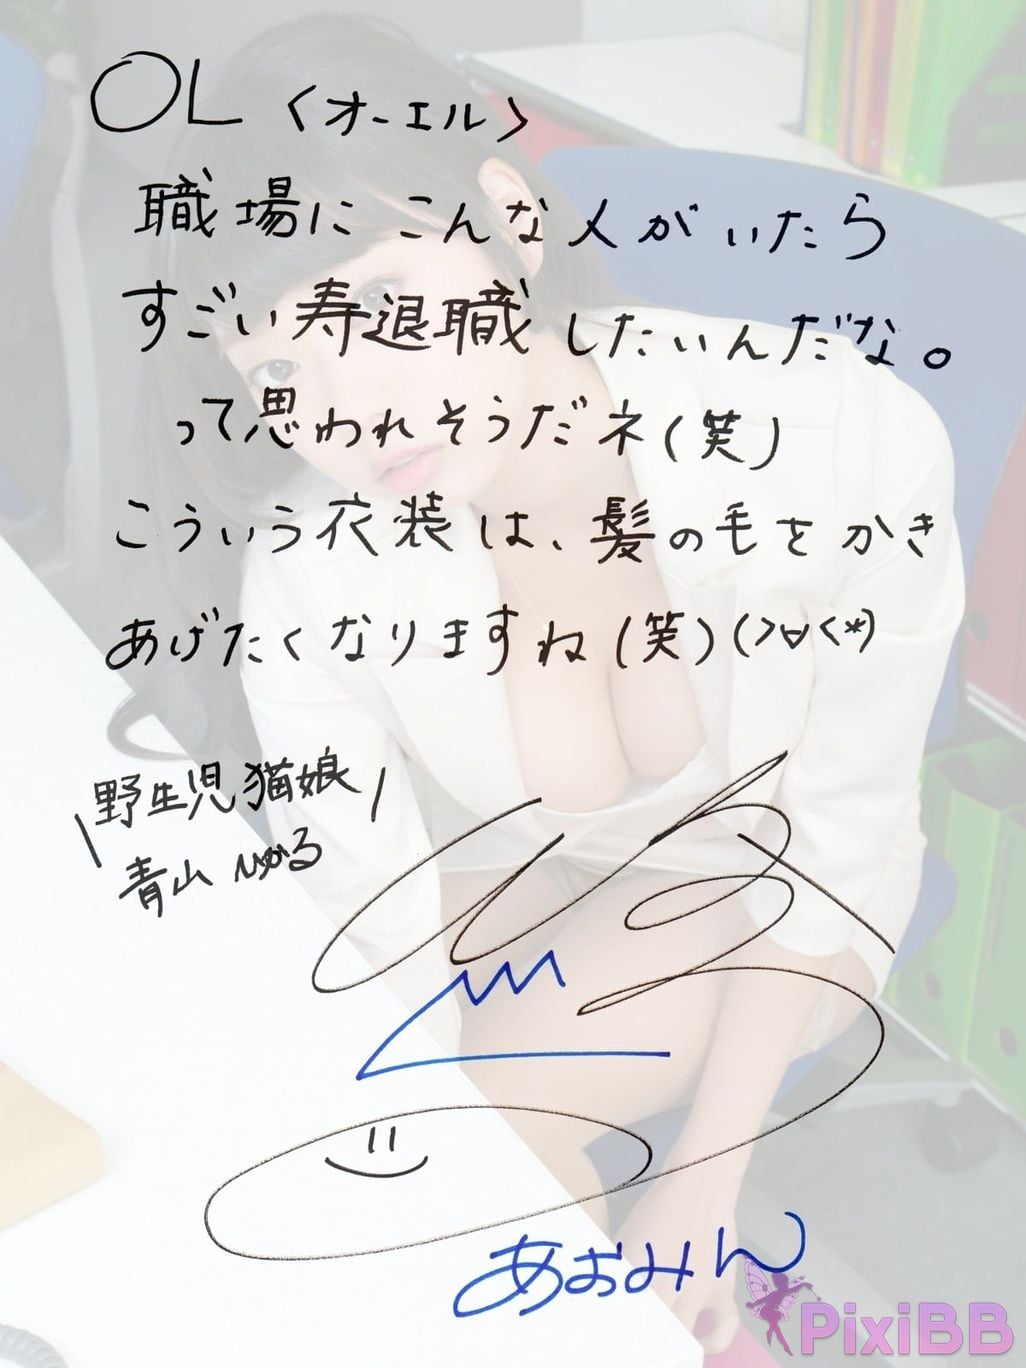 OL <オーエル>
職場にこんな人がいたら
すごい寿退職したいんだな。
って思われそうだネ(笑)
こういう衣装は、髪の毛をかき
あげたくなりますね(笑)(>∀<*)
\野生児猫娘/
青山ひかる
あおみん
PixiBB